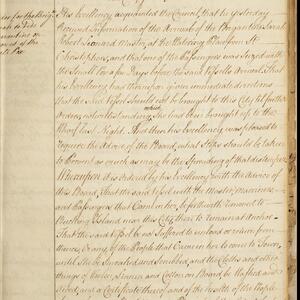 His Excellency acquainted the Council, that he Yesterday
Received Information of the Arrival of the Brigantine Sarah
Robert Leonard Master, at the Watering Place from St.
Christophers, and that one of the Passengers was Seized with
the Small Pox a few Days before the said Vessells Arrival. That
his Excellency had thereupon given immediate directions
that the said Vessel should not be brought to this City till further
Orders, notwithstanding which She had been brought up to the
Wharf last Night. And then his Excellency was pleased to
require the Advice of the Board, what Steps should be taken
to Prevent as much as may be the Spreading of that distemper.
Whereupon it is ordered by his Excellency with the Advice of
this Board, that the said Vessel with the Master, Mariners
and Passengers that Came in her, forthwith remove to
Island near this City, there to remain at Anchor
That the said Vessel be not Suffered to unload or return from
thence, or any of the People that Came in her to come to Town,
until She be Smoaked and Scrubbed, and the Cloths and other
things of Woolen, Linnen and Cotton on Board, be Washed and
Aired, and a Certificate thereof and of the health of the People